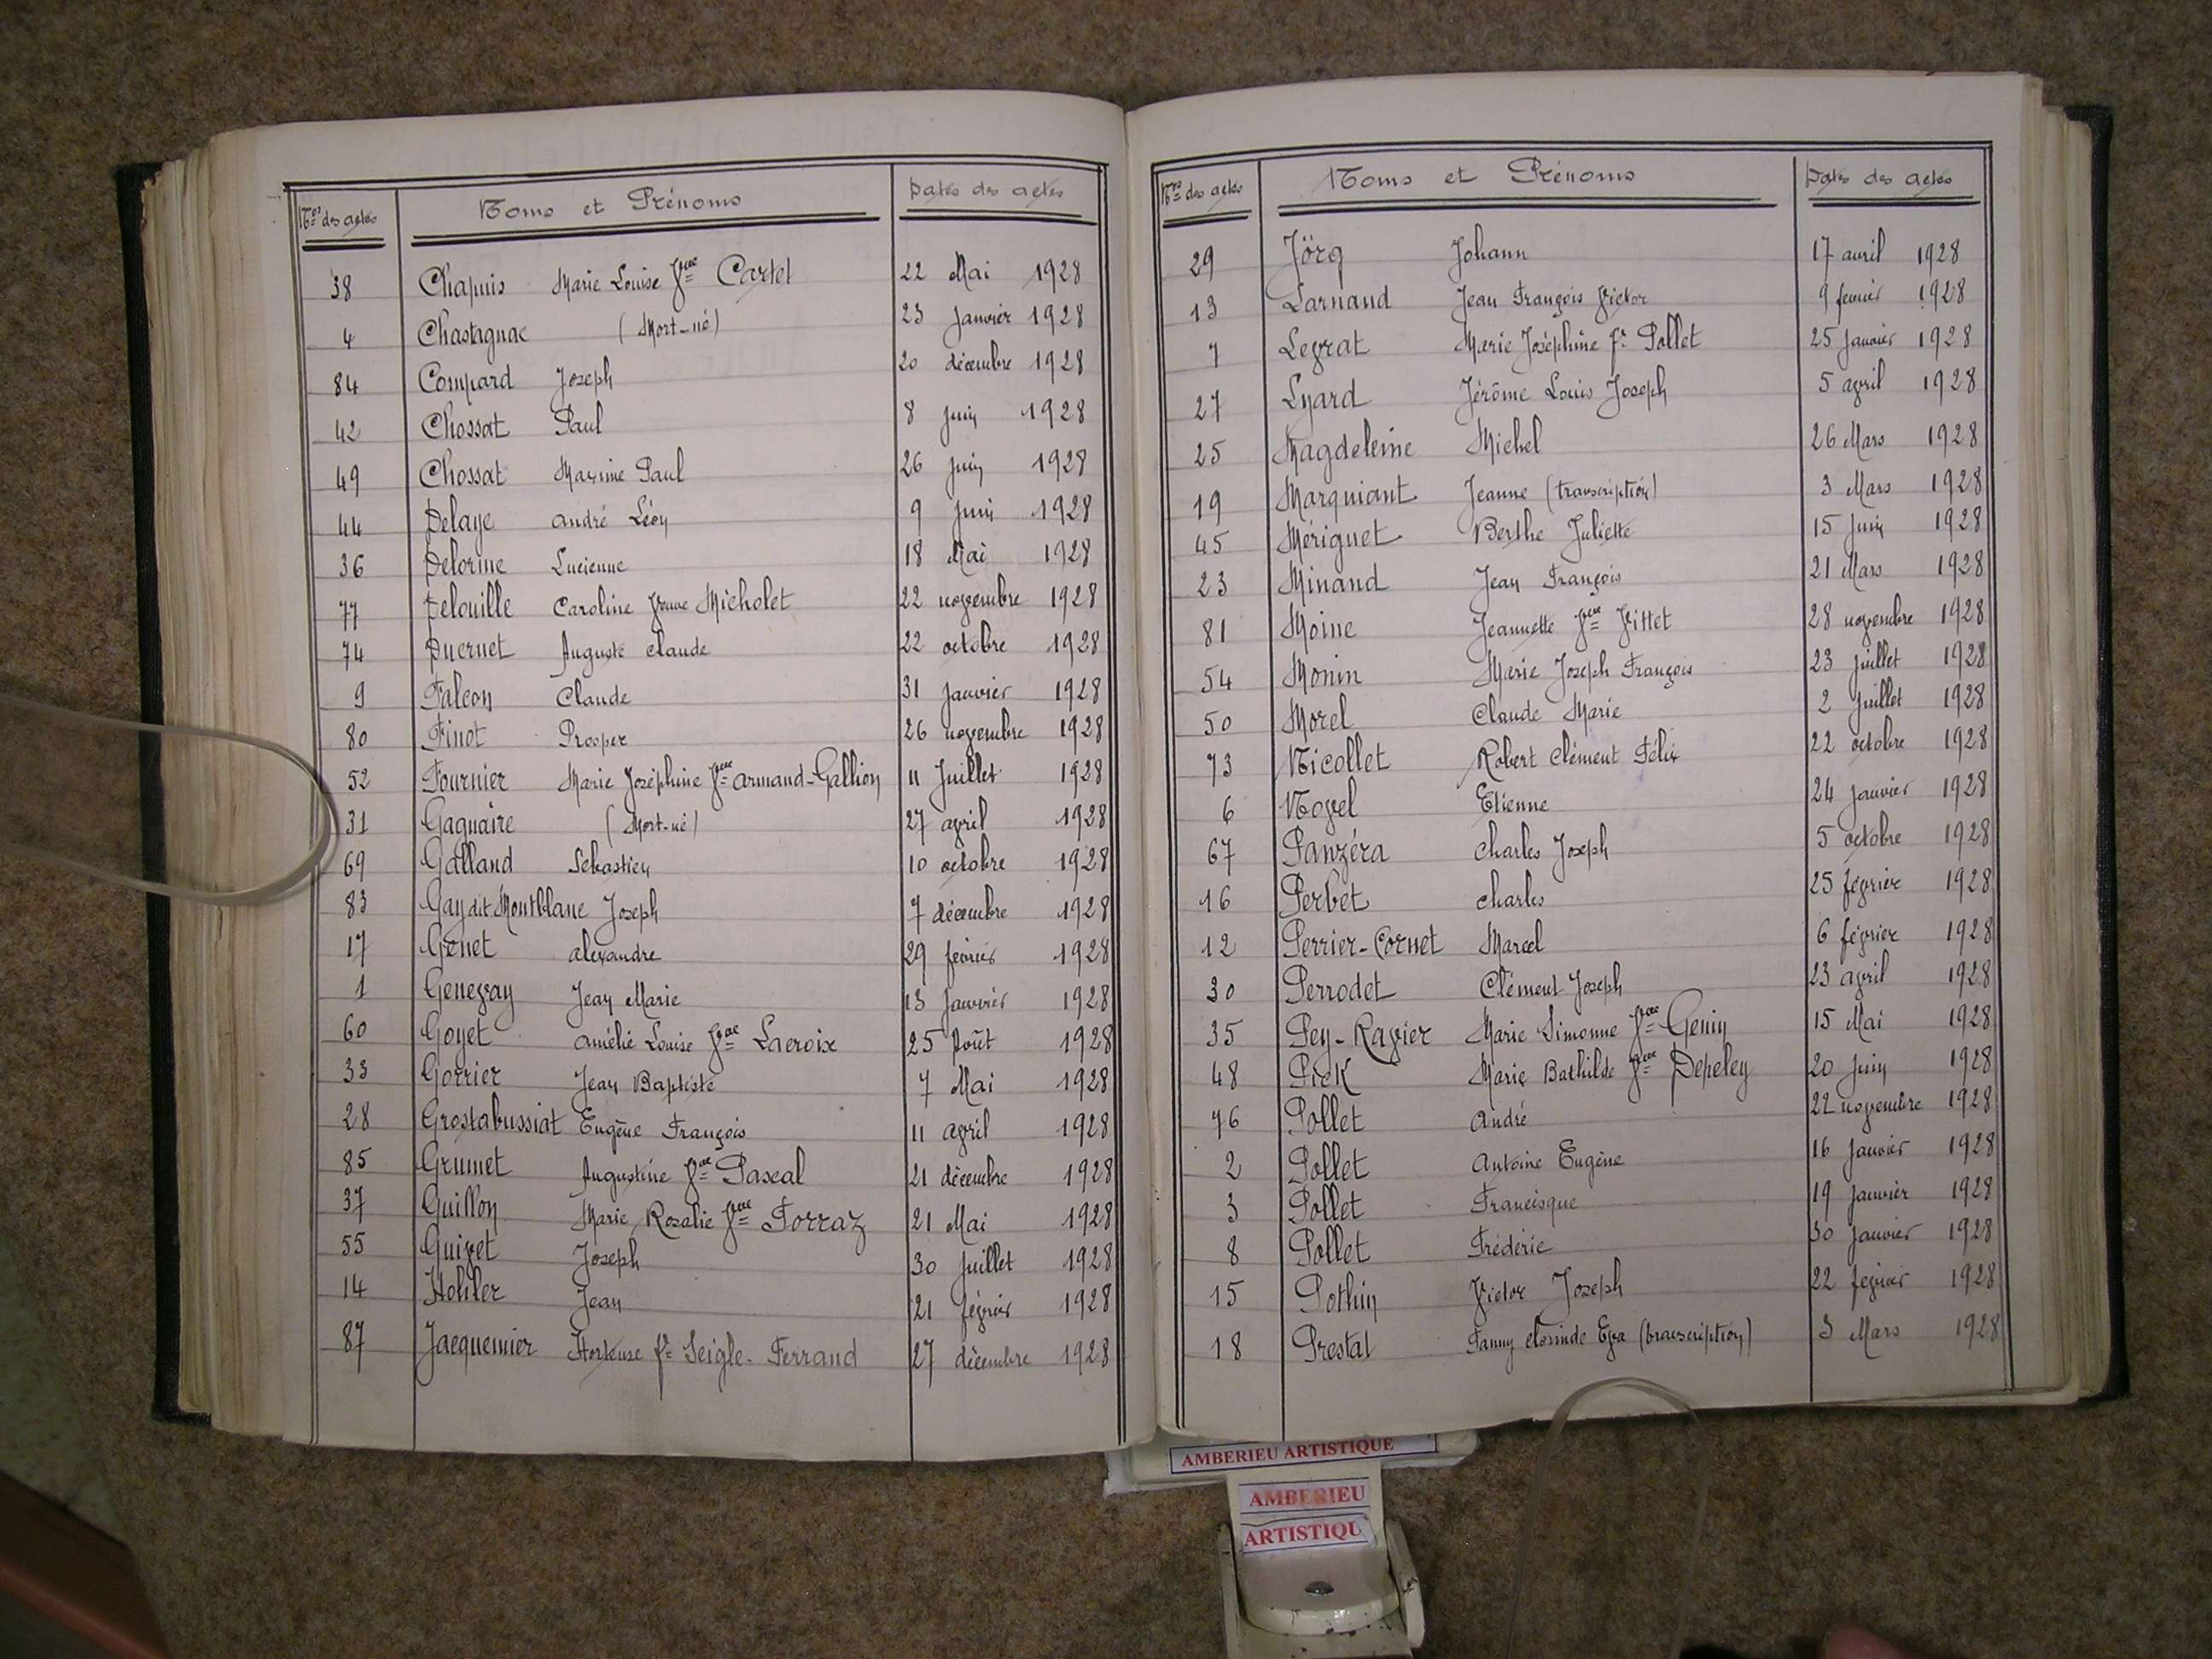 Nos des actes Noms et Prénoms Dates des actes
38 Chapuis Marie Louise Vve Cartet 22 Mai 1928
4 Chastagnac (Mort-né) 23 Janvier 1928
84 Compard Joseph 20 décembre 1928
42 Chossat Paul 8 Juin 1928
49 Chossat Maxime Paul 26 Juin 1928
44 Delaye André Léon 9 Juin 1928
36 Delorme Lucienne 18 Mai 1928
77 Delouille Caroline Veuve Micholet 22 novembre 1928
74 Ducruet Auguste Claude 22 octobre 1928
9 Falcon Claude 31 Janvier 1928
80 Finot Prosper 26 novembre 1928
52 Fournier Marie Joséphine Vve Armand-Gallion 11 Juillet 1928
31 Gagnaire (Mort-né) 27 avril 1928
69 Galland Sébastien 10 octobre 1928
83 Gay dit Montblanc Joseph 7 décembre 1928
17 Genet Alexandre 29 février 1928
1 Genevay Jean Marie 13 Janvier 1928
60 Goyet Amélie Louise Vve Lacroix 25 Août 1928
33 Gorrier Jean Baptiste 7 Mai 1928
28 Grostabussiat Eugène François 11 avril 1928
85 Grumet Augustine Vve Pascal 21 décembre 1928
37 Guillon Marie Rosalie Vve Forraz 21 Mai 1928
55 Guivet Joseph 30 Juillet 1928
14 Hohler Jean 21 février 1928
87 Jacquemier Hortense fe Seigle-Ferrand 27 décembre 1928
Nos des actes Noms et Prénoms Dates des actes
29 Jörg Johann 17 avril 1928
13 Larnaud Jean François Victor 9 février 1928
7 Legrat Marie Joséphine fe Pollet 25 Janvier 1928
27 Lyard Jérôme Louis Joseph 5 avril 1928
25 Magdeleine Michel 26 Mars 1928
19 Marquiant Jeanne (transcription) 3 Mars 1928
45 Mériguet Berthe Juliette 15 Juin 1928
23 Minand Jean François 21 Mars 1928
81 Moine Jeannette Vve Vittet 28 novembre 1928
54 Monin Marie Joseph François 23 Juillet 1928
50 Morel Claude Marie 2 Juillet 1928
73 Nicollet Robert Clément Félix 22 octobre 1928
6 Novel Etienne 24 Janvier 1928
67 Panzéra Charles Joseph 5 octobre 1928
16 Perbet Charles 25 février 1928
12 Perrier-Cornet Marcel 6 février 1928
30 Perrodet Clément Joseph 23 avril 1928
35 Pey-Ravier Marie Simonne Vve Genin 15 Mai 1928
48 Pick Marie Bathilde Vve Depeley 20 Juin 1928
76 Pollet André 22 novembre 1928
2 Pollet Antoine Eugène 16 Janvier 1928
3 Pollet Francisque 19 Janvier 1928
8 Pollet Frédéric 30 Janvier 1928
15 Pothin Victor Joseph 22 février 1928
18 Prestat Fanny Clorinde Eva (transcription) 3 Mars 1928
AMBERIEU ARTISTIQUE
AMBERIEU
ARTISTIQU